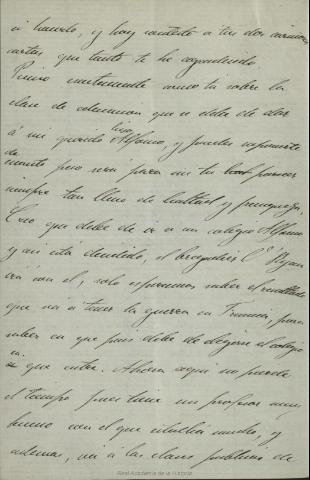 á hacerlo, y hoy contesto á tus dos cariñosas
cartas que tanto te he agradecido.
Pienso exactamente como tú sobre la
clase de educacion que se debe de dar
á mi querido hijo Alfonso, y puedes
de pero será para mi tu
siempre tan lleno de lealtad y franqueza.
Creo que debe de ir a un colegio Alfonso
y así está decidido, el brigadier
irá con el, solo esperamos saber el resultado
que va á tener la guerra en Francia, para
saber en que pais debe de elegirse el colegio
en que entre. Ahora aqui no pierde
el tiempo pues tiene un profesor muy
bueno con el que estudia mucho, y
ademas, vá á las clases publicas de
Real Academia de la Historia